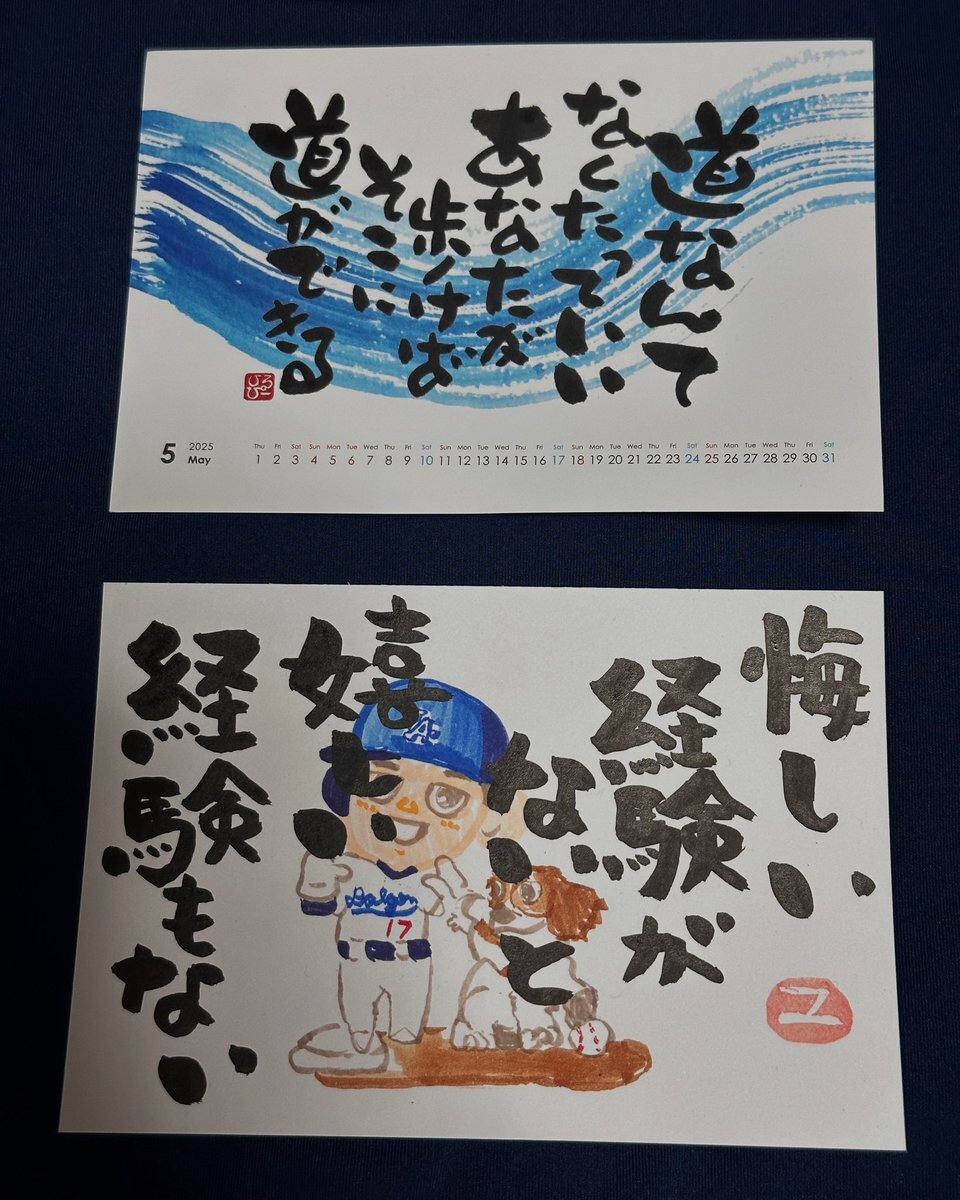 道なんて
なくたっていい
あなたが
歩けば
そこに
道ができる
ひろぴー
5 2025 May
Thu Fri Sat Sun Mon Tue Wed Thu Fri Sat Sun Mon Tue Wed Thu Fri Sat Sun Mon Tue Wed Thu Fri Sat Sun Mon Tue Wed Thu Fri Sat
1 2 3 4 5 6 7 8 9 10 11 12 13 14 15 16 17 18 19 20 21 22 23 24 25 26 27 28 29 30 31
悔しい
経験が
ないと
嬉しい
経験もない
LA
Dodgers
17
ユ